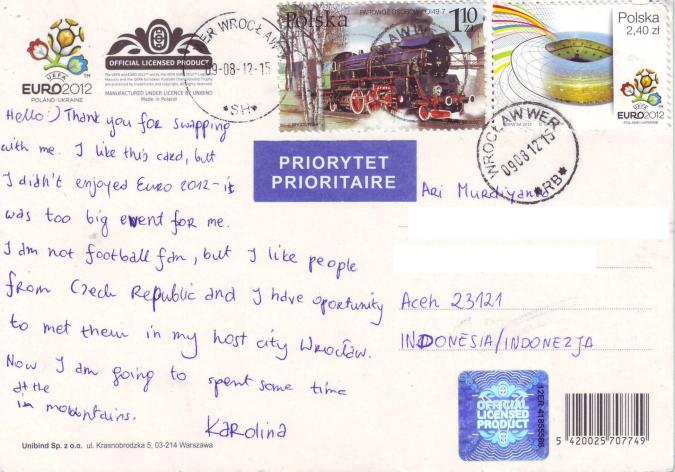 UEFA
EURO2012
POLAND-UKRAINE
OFFICIAL LICENSED PRODUCT
MANUFACTURED UNDER LICENCE BY UNIBIND
Made in Poland
WROCŁAW
09-08-12-15
*SH*
Polska
PAROWÓZ OSOBOWY OI49-7
1,10 zł
Polska
2,40 zł
UEFA
EURO2012
POLAND-UKRAINE
WROCŁAW WER
090812-15
*RB*
PRIORYTET
PRIORITAIRE
Hello:) Thank you for swapping
with me. I like this card, but
I didn't enjoyed Euro 2012 - it
was too big event for me.
I am not football fan, but I like people
from Czech Republic and I have oportunity
to met them in my host city Wrocław.
Now I am going to spent some time
at the
in mountains.
Karolina
Ari Murdiyanto
Aceh 23121
INDONESIA/INDONEZJA
OFFICIAL
LICENSED
PRODUCT
12ER 41855586
5 420025 707749
Unibind Sp. z o.o. ul. Krasnobrodzka 5, 03-214 Warszawa